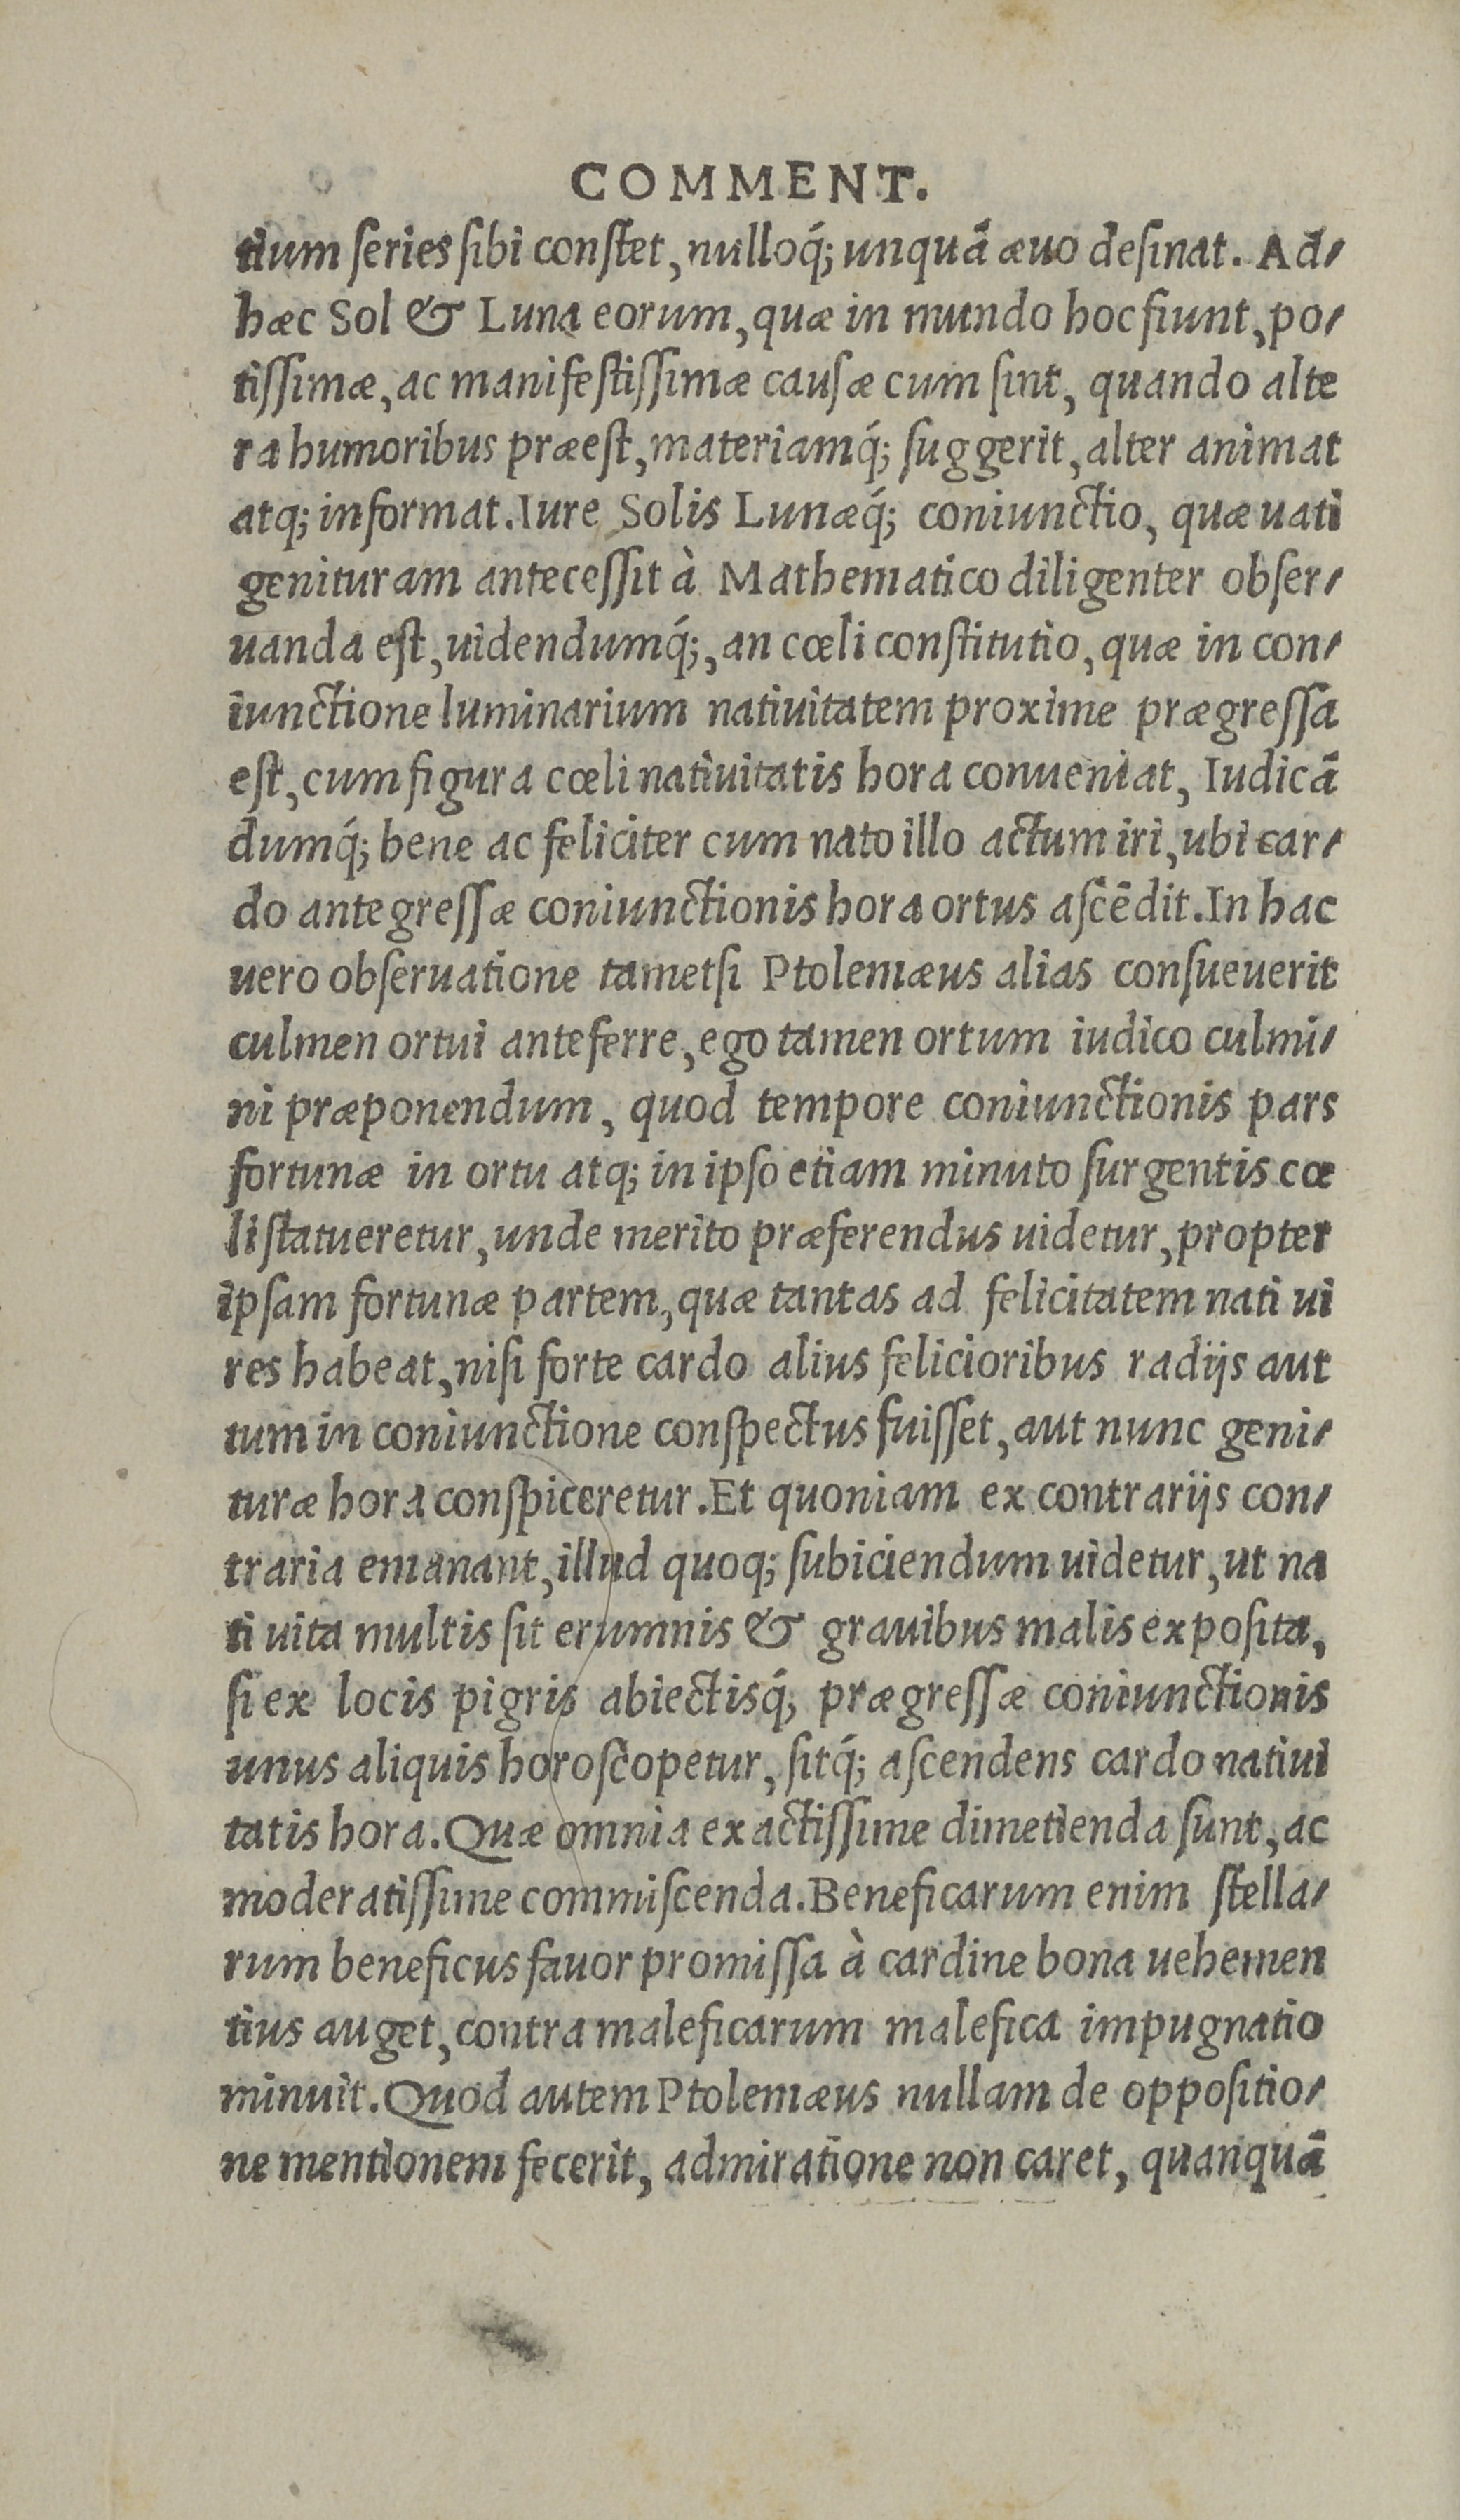 COMMENT.
tium series sibi constet, nulloq́; unquā æuo desinat. Ad-
hæc Sol & Luna eorum, quæ in mundo hoc fiunt, po-
tissimæ, ac manifestissimæ causæ cum sint, quando alte
ra humoribus præest, materiamq́; suggerit, alter animat
atq; informat. Iure Solis Lunæq́; coniunctio, quæ uati
genituram antecessit à Mathematico diligenter obser-
uanda est, uidendumq́;, an cœli constitutio, quæ in con-
iunctione luminarium natiuitatem proxime prægressa
est, cum figura cœli natiuitatis hora conueniat, Iudicā
dumq́; bene ac feliciter cum nato illo actum iri, ubi car-
do antegressæ coniunctionis hora ortus ascēdit. In hac
uero obseruatione tametsi Ptolemæus alias consueuerit
culmen ortui anteferre, ego tamen ortum iudico culmi-
ni præponendum, quod tempore coniunctionis pars
fortunæ in ortu atq; in ipso etiam minuto surgentis cœ
li statueretur, unde merito præferendus uidetur, propter
ipsam fortunæ partem, quæ tantas ad felicitatem nati ui
res habeat, nisi forte cardo alius felicioribus radijs aut
tum in coniunctione conspectus fuisset, aut nunc geni-
turæ hora conspiceretur. Et quoniam ex contrarijs con-
traria emanant, illud quoq; subiciendum uidetur, ut na
ti uita multis sit erumnis & grauibus malis exposita,
si ex locis pigris abiectisq́; prægressæ coniunctionis
unus aliquis horoscopetur, sitq́; ascendens cardo natiui
tatis hora. Quæ omnia exactissime dimetienda sunt, ac
moderatissime commiscenda. Beneficarum enim stella-
rum beneficus fauor promissa à cardine bona uehemen
tius auget, contra maleficarum malefica impugnatio
minuit. Quod autem Ptolemæus nullam de oppositio-
ne mentionem fecerit, admiratione non caret, quanquā